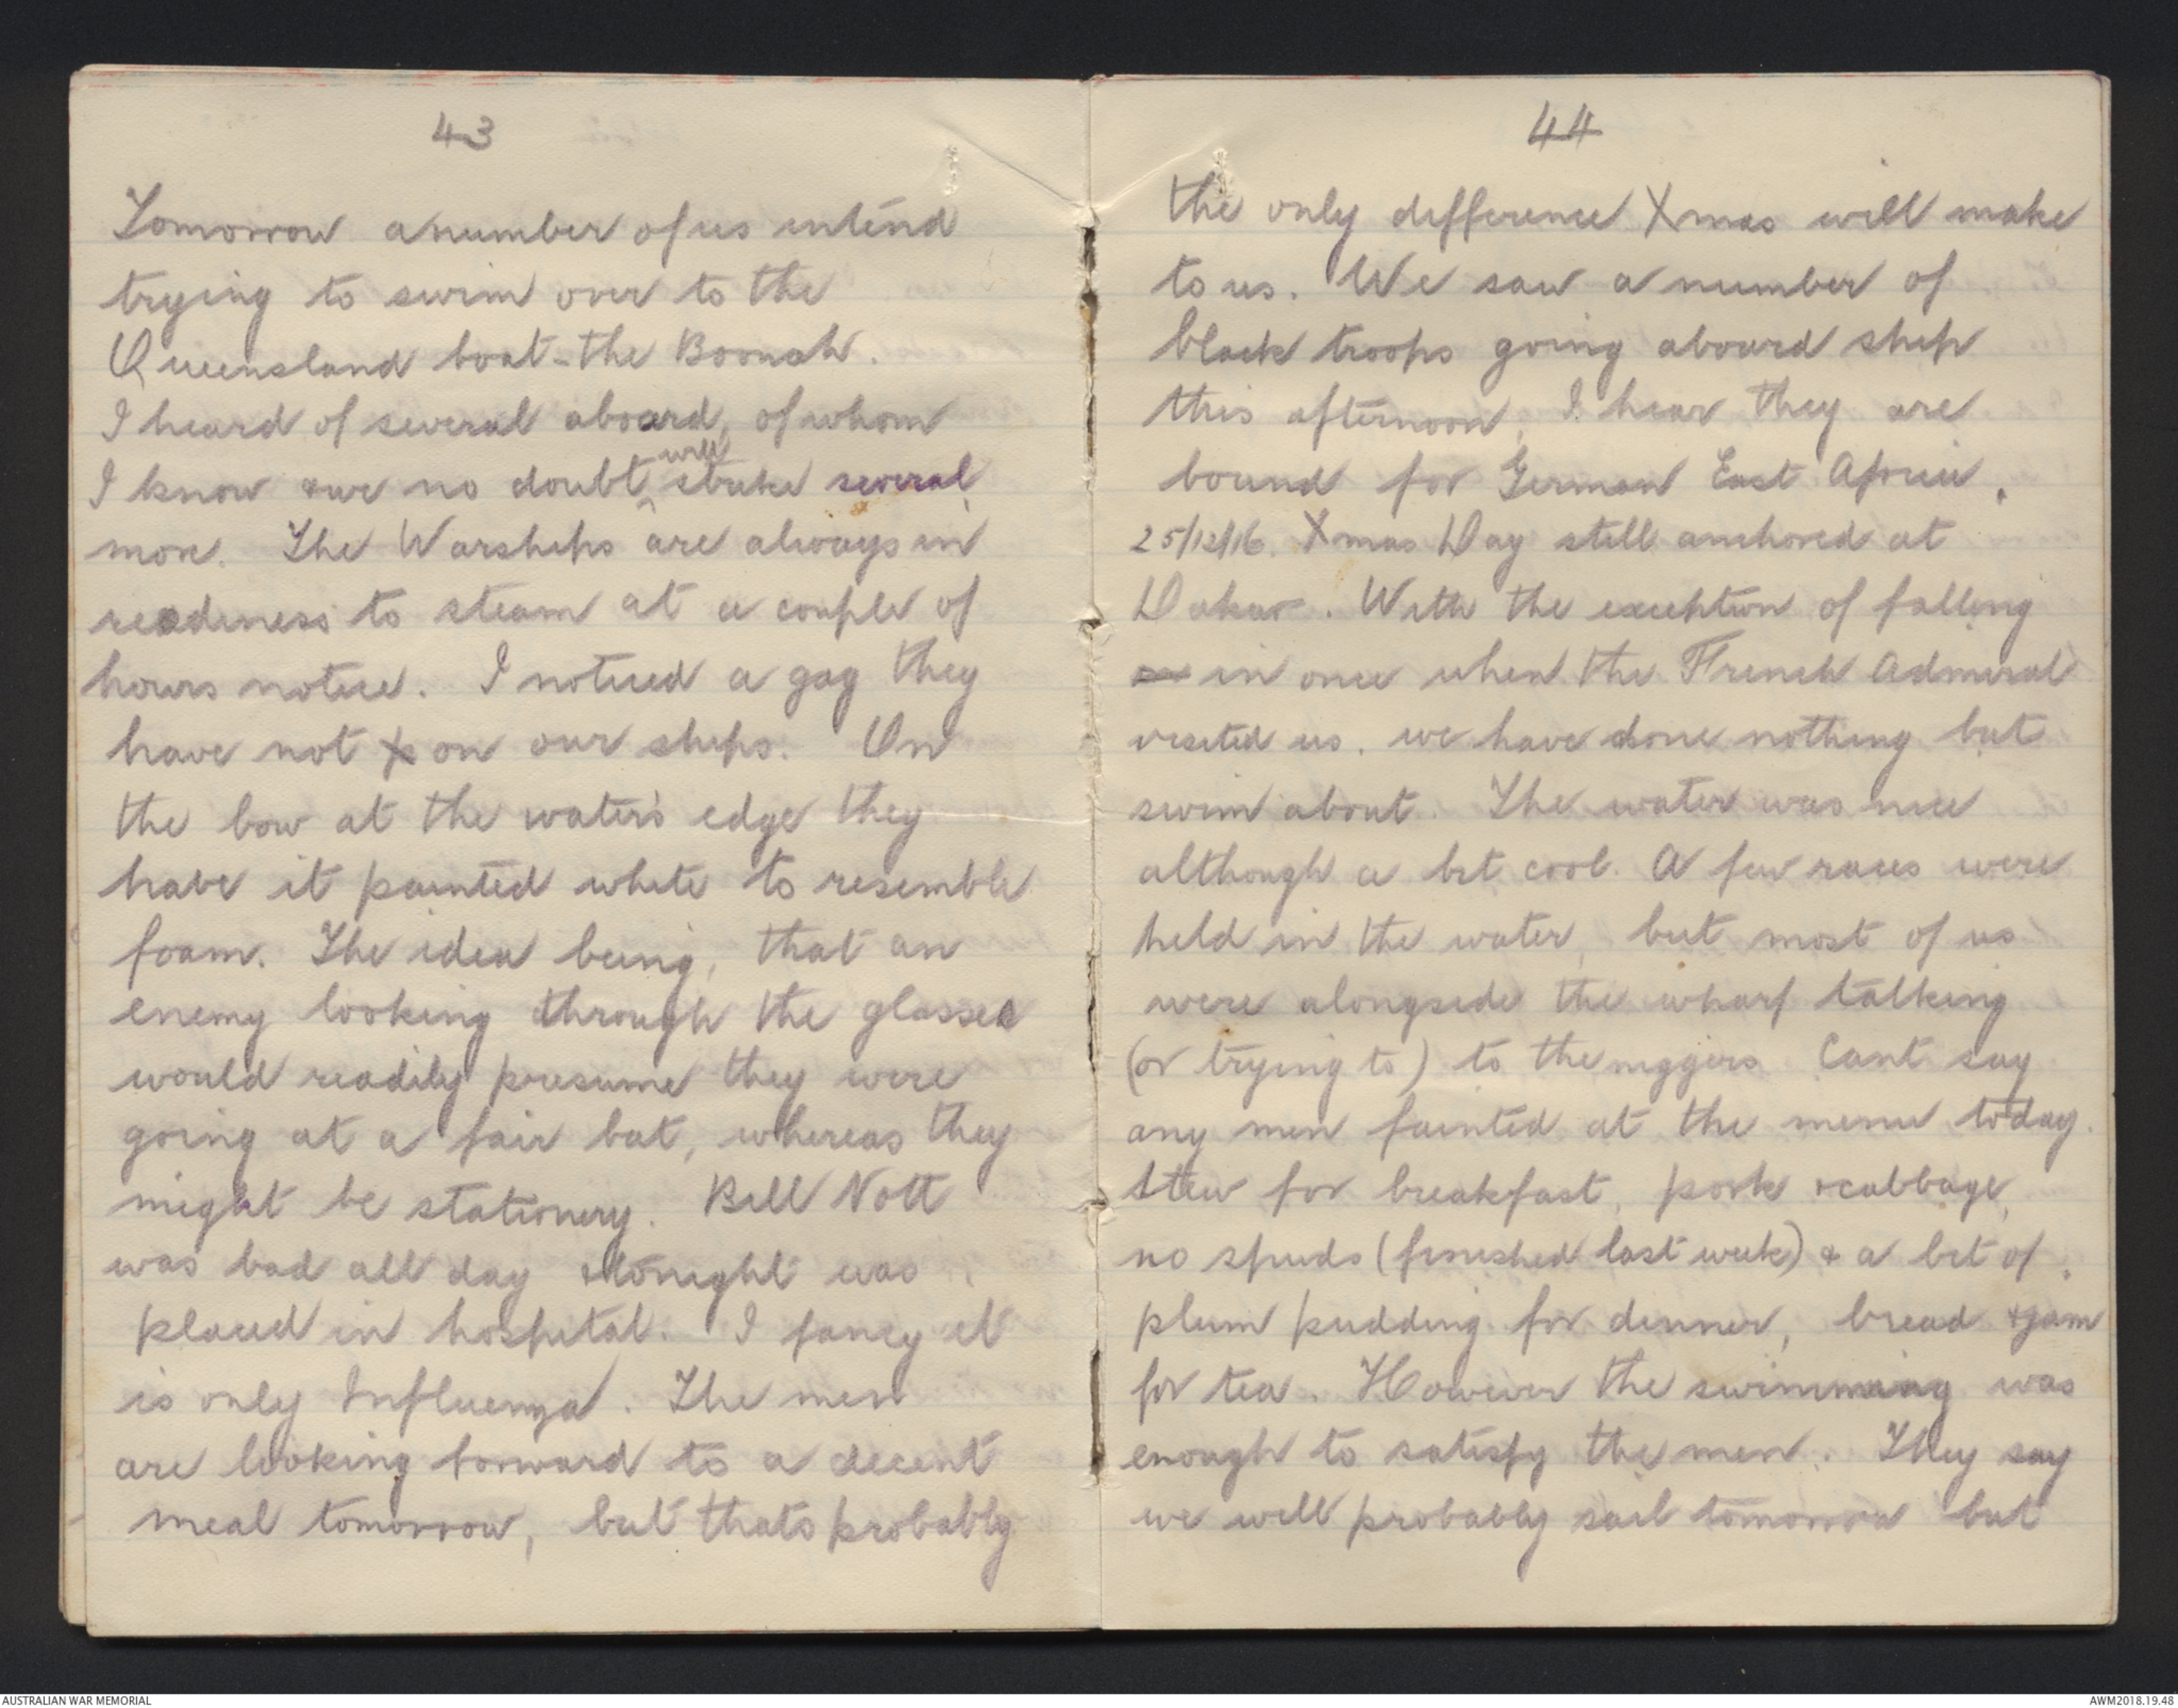 43
Tomorrow a number of us intend
trying to swim over to the
Queensland boat - the Boonah.
I heard of several aboard, of whom
I know & we no doubt ^will strike several
more. The Warships are always in
readiness to steam at a couple of
hours notice. I noticed a gag they
have not on our ships. On
the bow at the water's edge they
have it painted white to resemble
foam. The idea being, that an
enemy looking through the glasses
would readily presume they were
going at a fair bat, whereas they
might be stationery. Bill Nott
was bad all day & tonight was
placed in hospital. I fancy it
is only Influenza. The men
are looking forward to a decent
meal tomorrow, but thats probably
44
the only difference Xmas will make
to us. We saw a number of
black troops going aboard ship
this afternoon, I hear they are
bound for German East Africa.
25/12/16. Xmas Day still anchored at
Dakar. With the exception of falling
in once when the French Admiral
visited us, we have done nothing but
swim about. The water was nice
although a bit cool. A few races were
held in the water, but most of us
were alongside the wharf talking
(or trying to) to the niggers. Cant say
any men fainted at the menu today.
Stew for breakfast, pork & cabbage,
no spuds (finished last week) & a bit of
plum pudding for dinner, bread & jam
for tea. However the swimming was
enough to satisfy the men. They say
we will probably sail tomorrow but
AUSTRALIAN WAR MEMORIAL
AWM2018.19.48